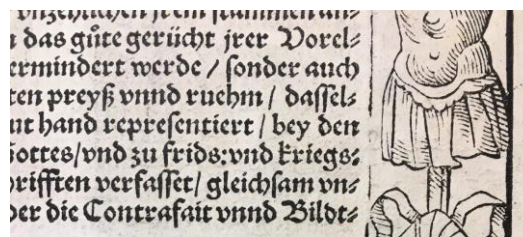 das gůte gerücht jrer Vorel⸗
ermindert werde / sonder auch
ten preyß vnnd ruehm / dassel⸗
ut hand represenntiert / bey den
Gottes/vnd zu frids:vnd kriegs⸗
rifften verfasset/ gleichsam vn⸗
der die Contrafait vnnd Bildt⸗